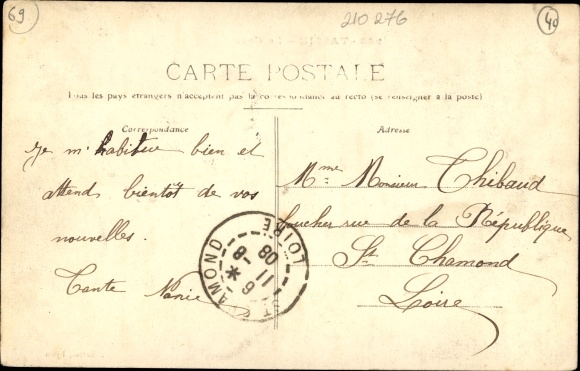 69
210 276
40
CARTE POSTALE
Tous les pays étrangers n'acceptent pas la correspondance au recto (se renseigner à la poste)
Correspondance
Je m'habitue bien et
attend bientôt de vos
nouvelles.
Tante Marie
Adresse
Mme Monsieur Thibaud
boucher rue de la République
St Chamond
Loire
AMOND
LOIRE
8-
6 11 08